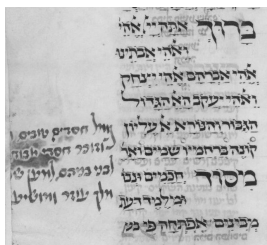 ברוך אתה יי אלהי
ואלהי אבתינו
אלהי אברהם אלהי יצחק
ואלהי יעקב האל הגדול
הגבור והנורא אל עליון
קונה ברחמיו שמים ואר
מסוד חכמים ונבו
למד דעת
מבונים אפתחה פי בש
גומל חסדים טובים
וזוכר חסדי אבות
לבני בניהם למען
מלך עוזר ומושיע